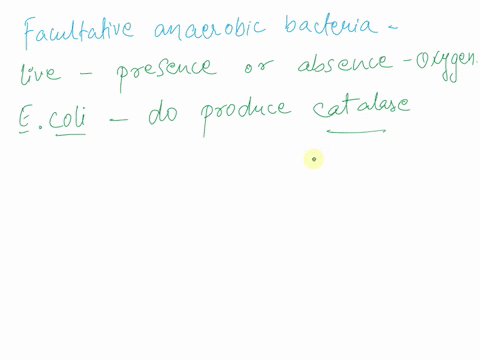 Facultative anaerobic bacteria -
live - presence or absence - Oxygen.
E. coli - do produce catalase